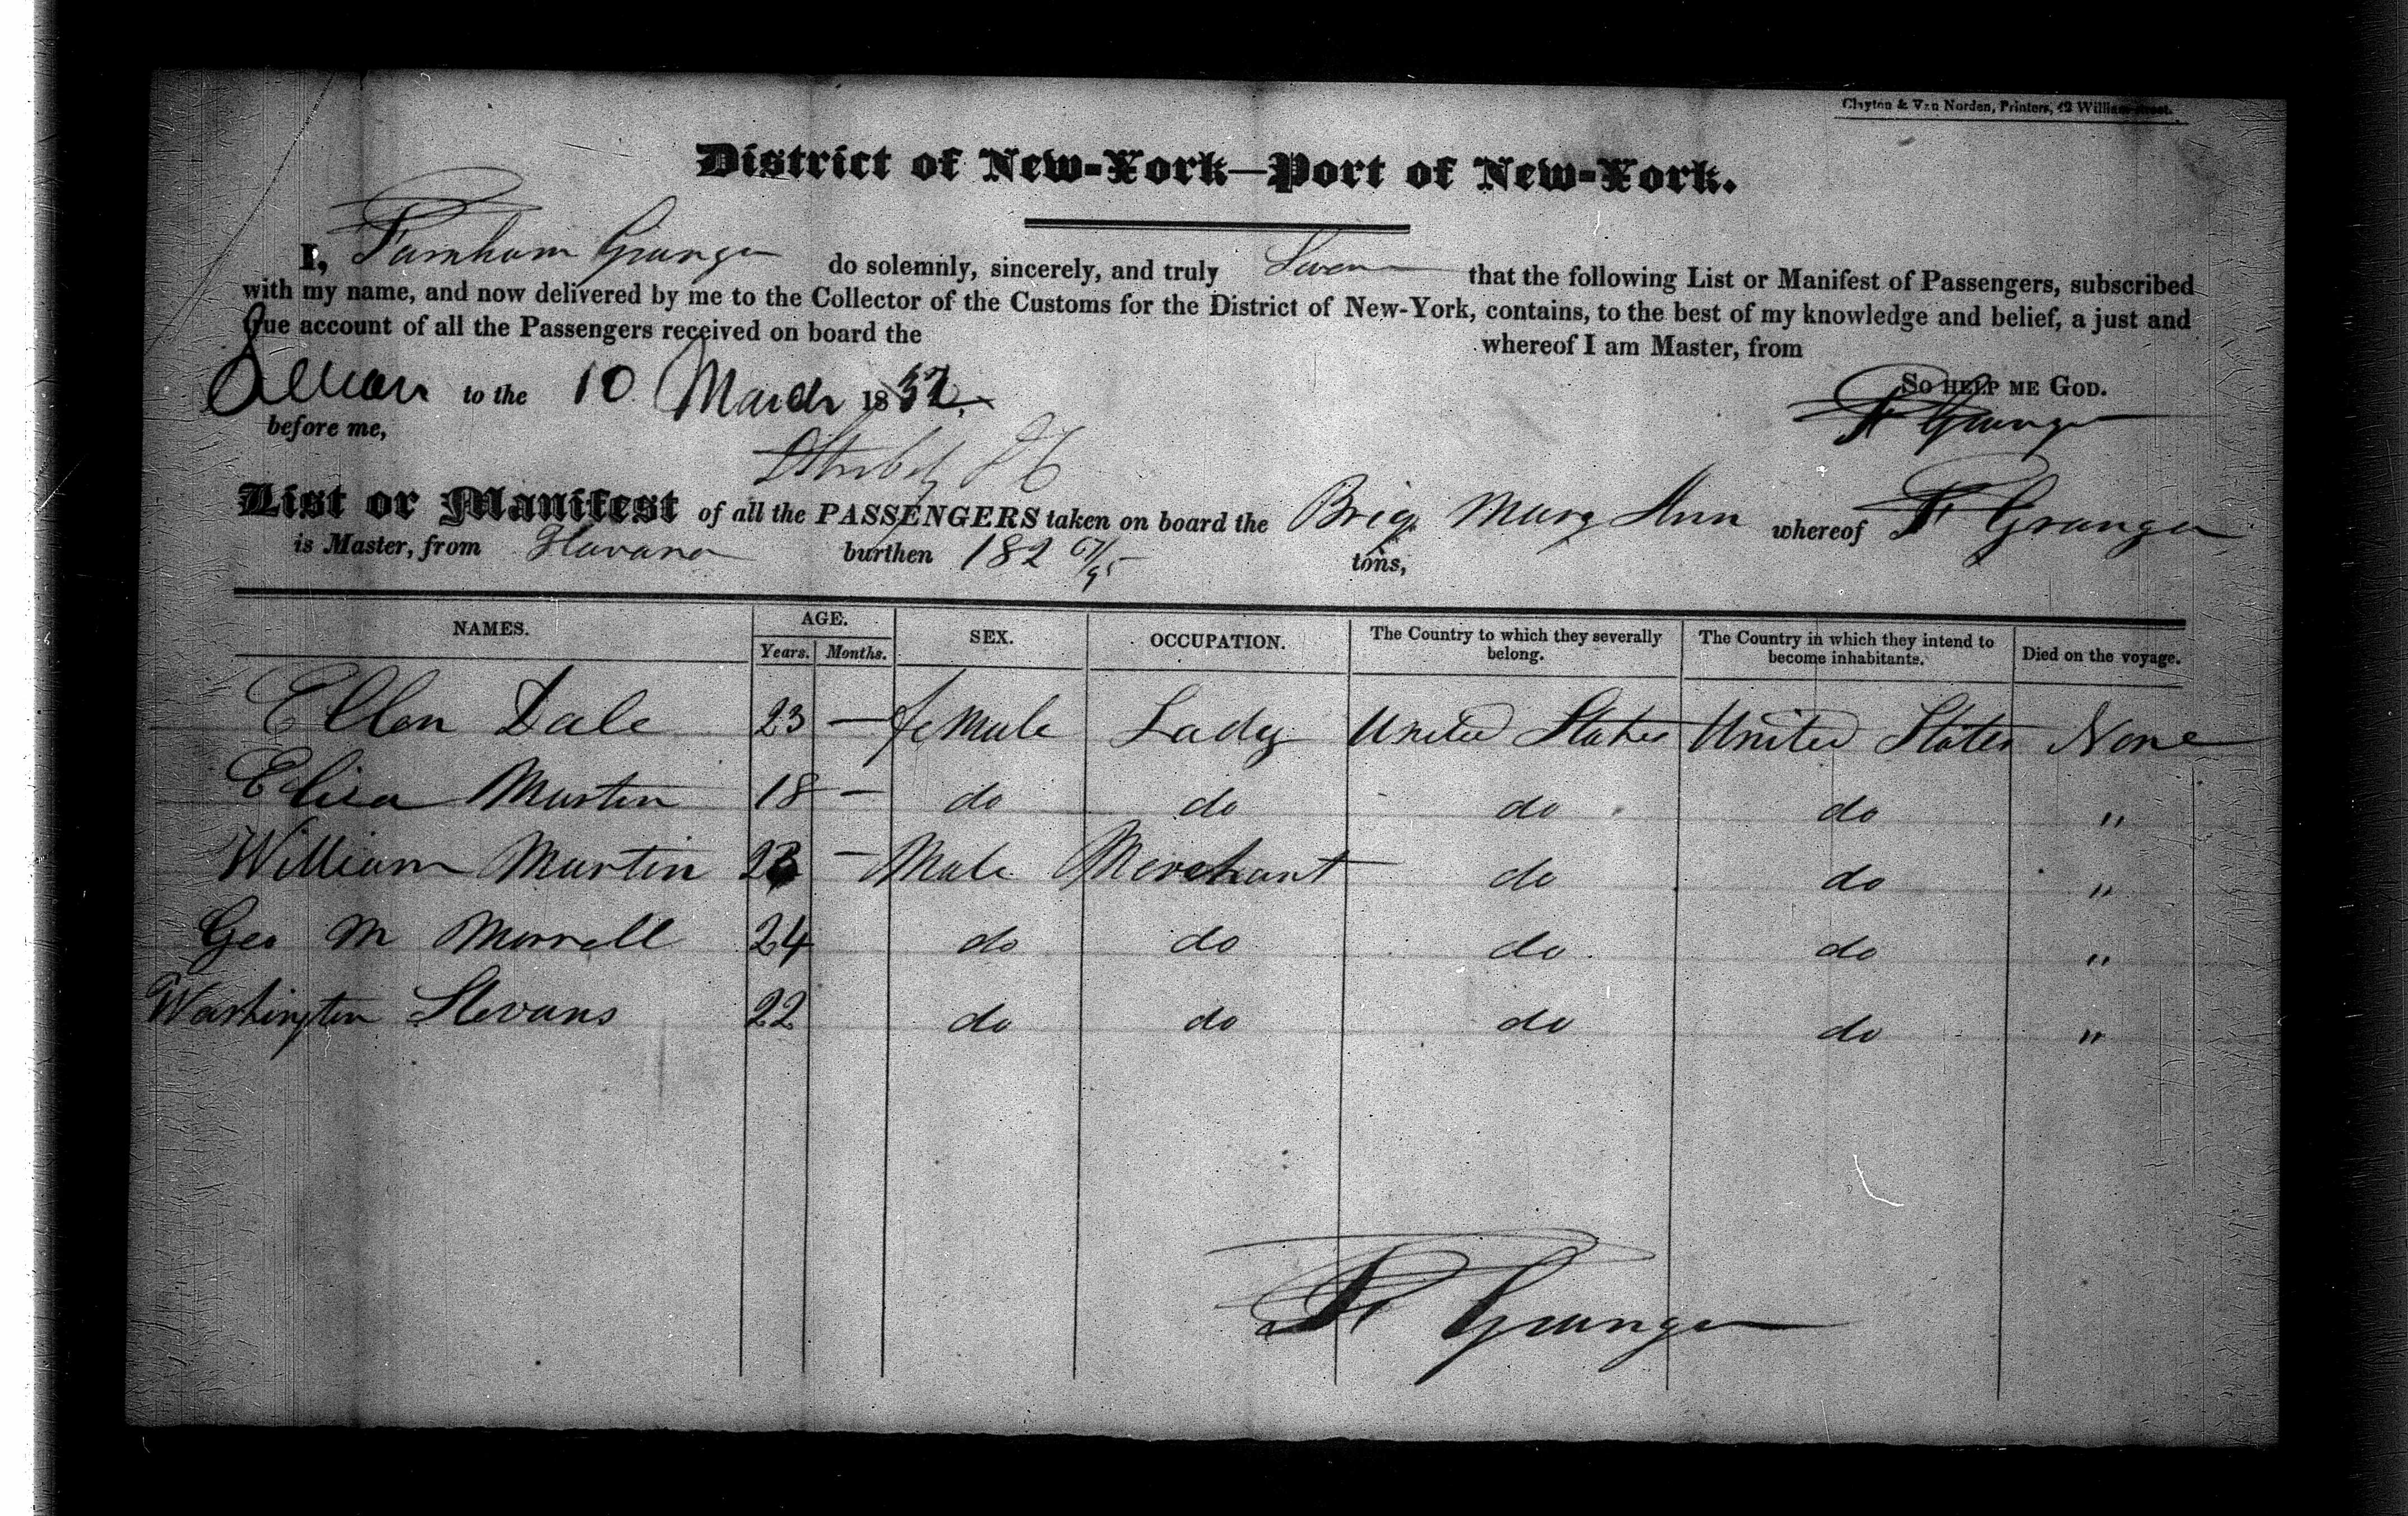 Clayton & Van Norden, Printers, 42 William-street.
District of New-York—Port of New-York.
I, Farnham Granger do solemnly, sincerely, and truly Swear that the following List or Manifest of Passengers, subscribed
with my name, and now delivered by me to the Collector of the Customs for the District of New-York, contains, to the best of my knowledge and belief, a just and
true account of all the Passengers received on board the whereof I am Master, from
to the 10 March 1832. So HELP ME GOD.
before me, F Granger
List or Manifest of all the PASSENGERS taken on board the Brig Mary Ann whereof F Granger
is Master, from Havana burthen 182 67/95 tons,
NAMES. AGE. SEX. OCCUPATION. The Country to which they severally belong. The Country in which they intend to become inhabitants. Died on the voyage.
Years. Months.
Ellen Dale 23 — female Lady United States United States None
Eliza Martin 18 — do do do do "
William Martin — Male Merchant do do "
Geo M Morrell 24 do do do do "
Washington Stevans 22 do do do do "
F Granger